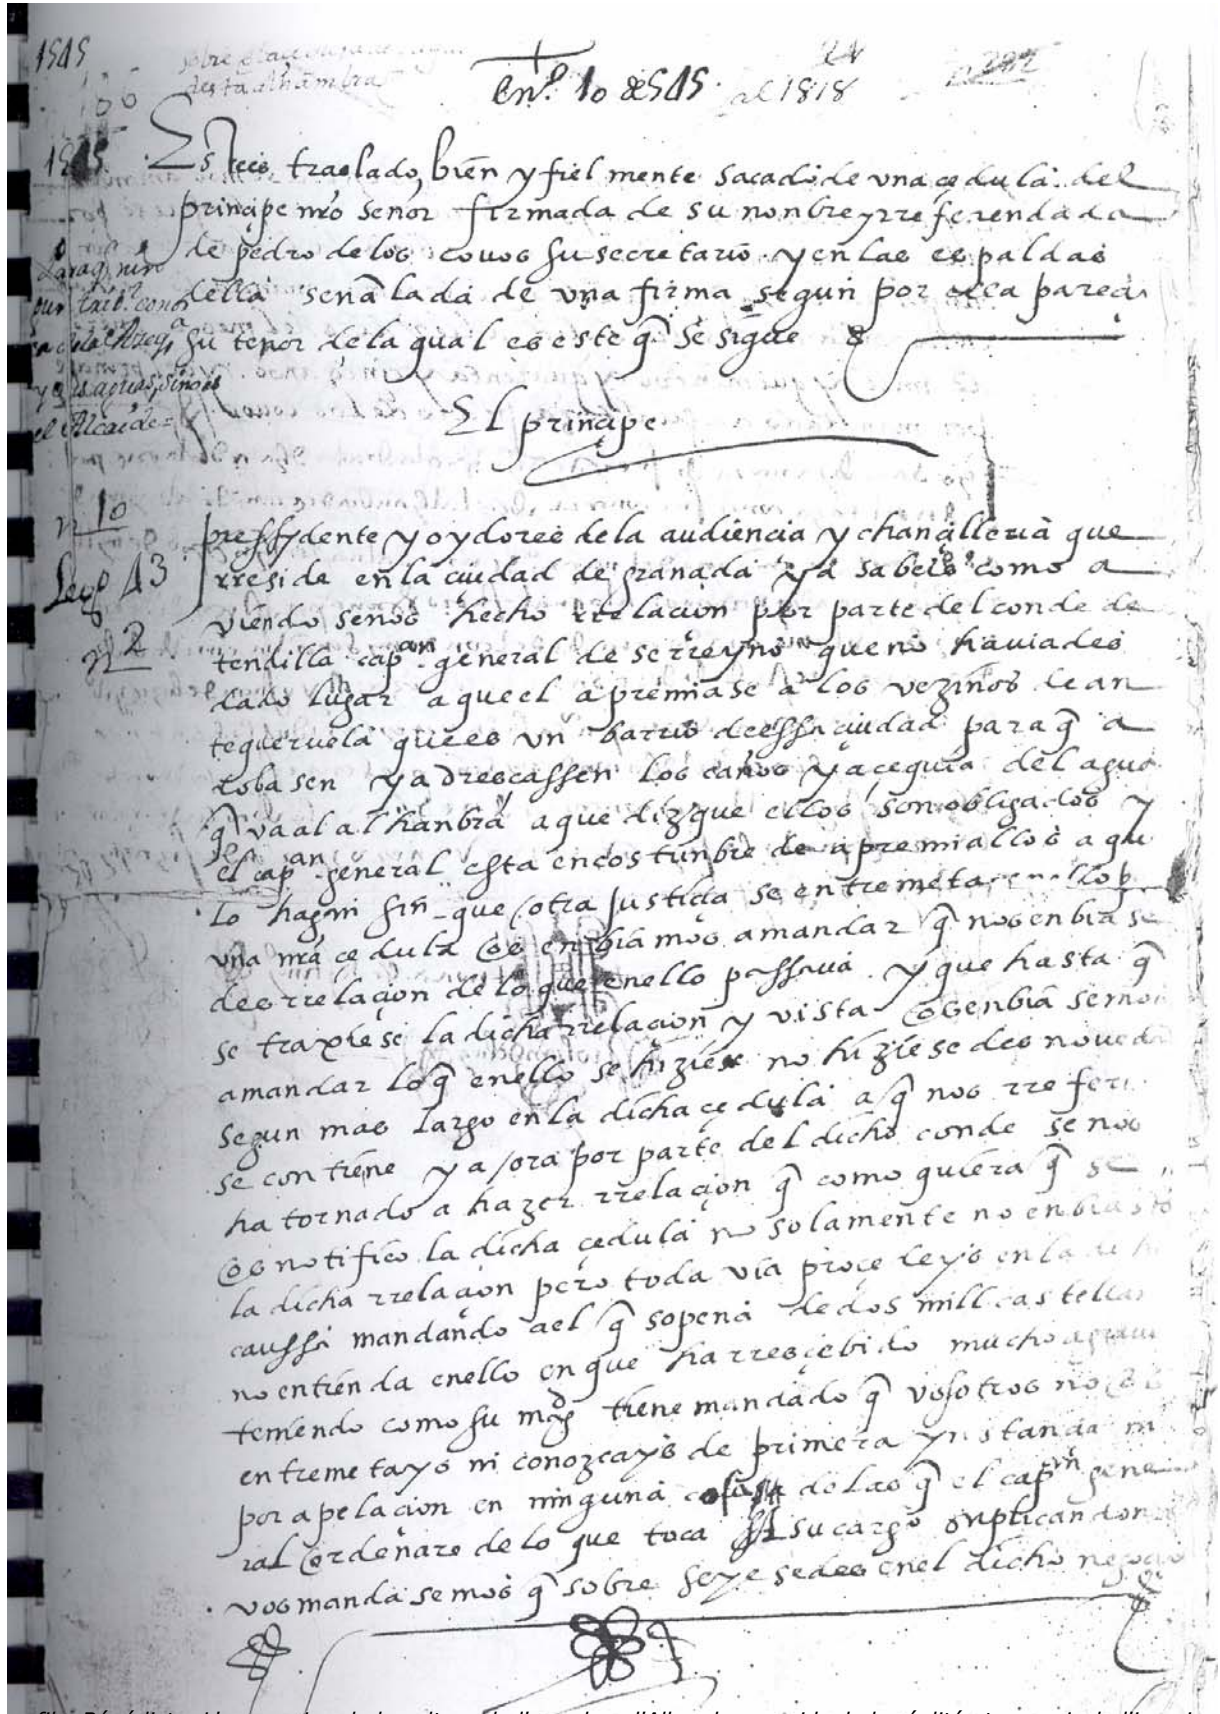 1515
sobre el
desta alhambra
106
En.º 10 de 515. al 1818
1515
Este es traslado, bien y fiel mente sacado de una çedula del
prinçipe nr̃o señor firmada de su nonbre y rreferendada
de pedro de los covos su secretario y en las espaldas
della señalada de una firma segun por ella pareçia
su tenor de la qual es este q̃ se sigue
y las aguas, sino es
el Alcaide =
El prinçipe
n 10
Leg.º 43
n 2
pressydente y oydores de la audiençia y chançilleria que
rreside en la çiudad de granada ya sabeis como a
viendo senos hecho rrelaçion por parte del conde de
tendilla cap.an general dese rreyno que no haviades
dado lugar a que el apremiase a los vezinos de an
tequeruela que es un barrio dessa çiudad para q̃ a
lobasen y adresçassen los caños y açequia del agua
q̃ va al alhanbra a que dizque ellos son obligados y
el cap.an general esta en costunbre de apremiallos a que
lo hagan sin que otra justiçia se entremeta en ello p
una nr̃a çedula os enbiamos a mandar q̃ nos enbiase
des rrelaçion de lo que en ello passava y que hasta q̃
se traxiese la dicha rrelaçion y vista os enbiasemos
a mandar lo q̃ en ello se hiziese no hiziesedes noveda
segun mas largo en la dicha çedula a q̃ nos rreferi
se contiene y agora por parte del dicho conde se nos
ha tornado a hazer rrelaçion q̃ como quiera q̃ se
os notifico la dicha çedula no solamente no enbiasto
la dicha rrelaçion pero toda via proçeleys en la dicha
caussa mandando a el q̃ so pena de dos mill castellan
no entienda en ello en que ha rresçebido mucho agravi
teniendo como su mag.d tiene mandado q̃ vosotros no os
entremetays ni conozcays de primera ynstançia ni
por apelaçion en ninguna cossa de las q̃ el cap.an gene
ral ordenare de lo que toca a su cargo suplicandonos
vos mandasemos q̃ sobreseyesedes en el dicho negoçio